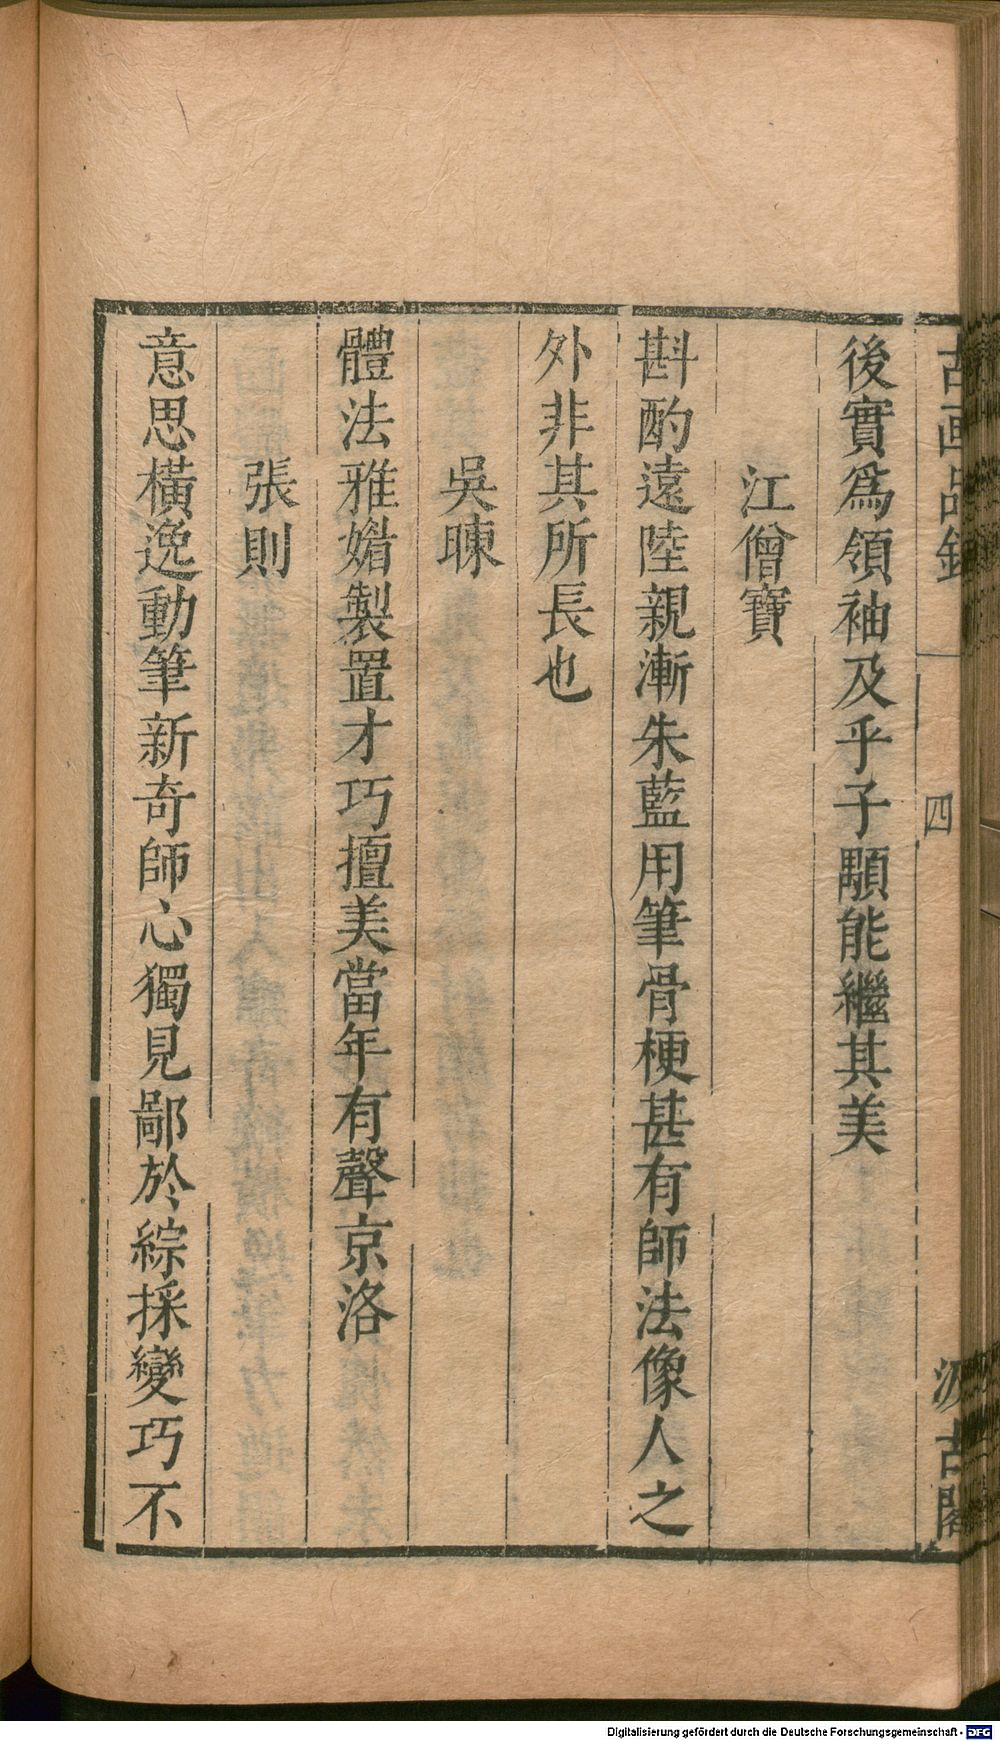 古画品錄
四
汲古閣
後實爲領袖及乎子顒能繼其美
江僧寶
斟酌遠陸親漸朱藍用筆骨梗甚有師法像人之
外非其所長也
吳暕
體法雅媚製置才巧擅美當年有聲京洛
張則
意思橫逸動筆新奇師心獨見鄙於綜採變巧不
Digitalisierung gefördert durch die Deutsche Forschungsgemeinschaft - DFG